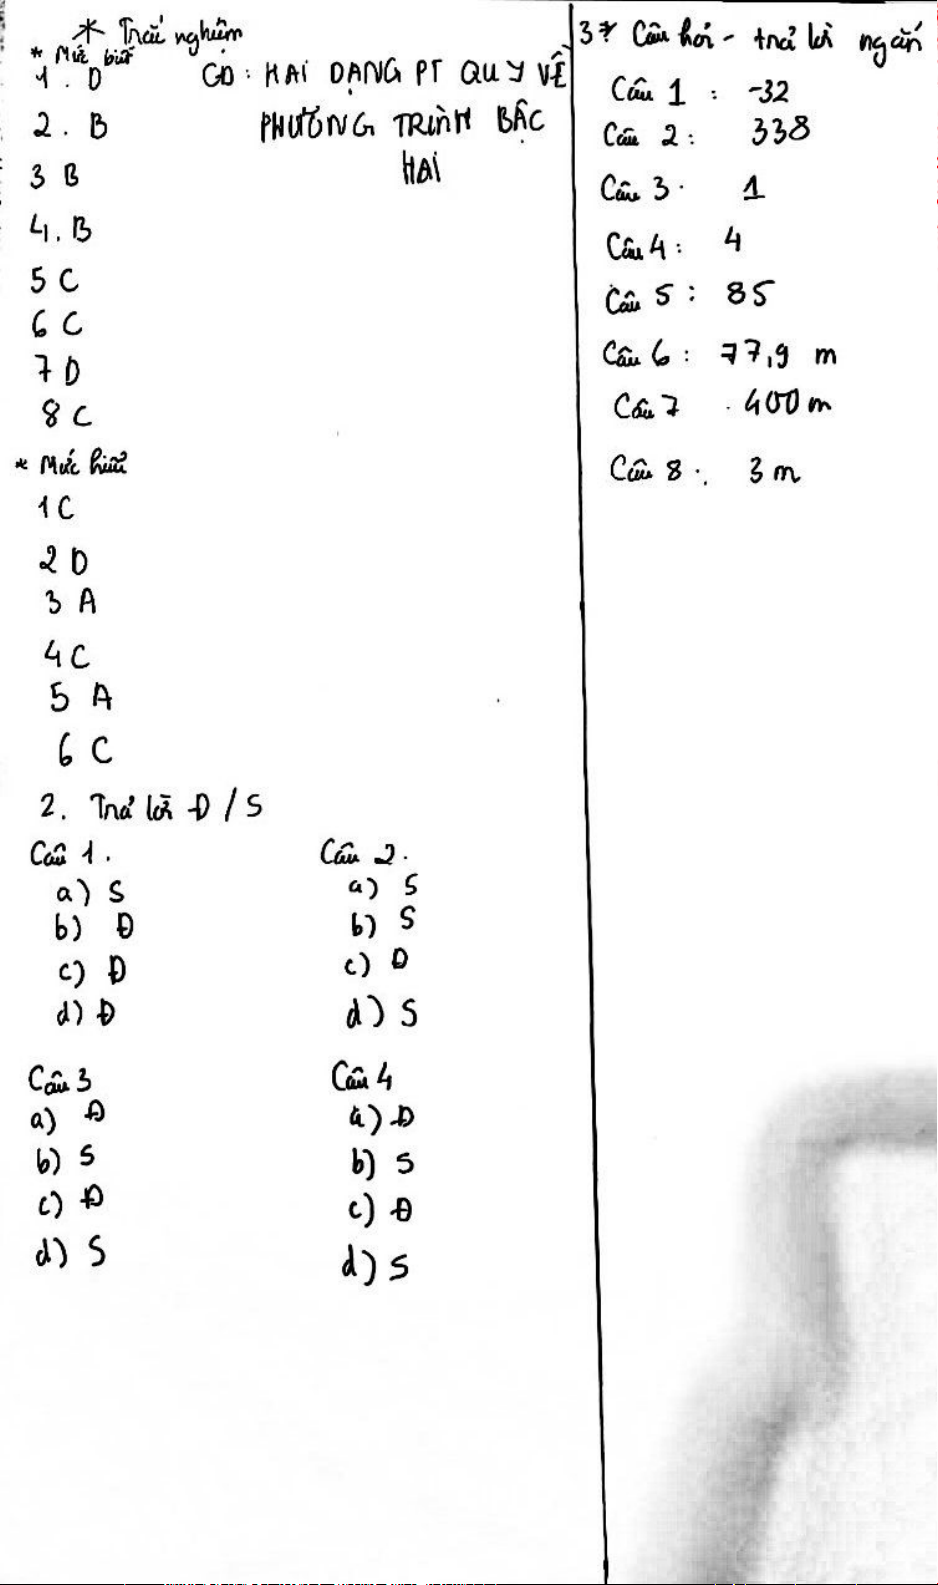 * Trắc nghiệm
* Mức biết
1. D
CD: HAI DẠNG PT QUY VỀ
PHƯƠNG TRÌNH BẬC
HAI
2. B
3 B
4. B
5 C
6 C
7 D
8 C
* Mức hiểu
1 C
2 D
3 A
4 C
5 A
6 C
2. Trả lời Đ / S
Câu 1.
a) S
b) Đ
c) Đ
d) Đ
Câu 2.
a) S
b) S
c) Đ
d) S
Câu 3
a) Đ
b) S
c) Đ
d) S
Câu 4
a) Đ
b) S
c) Đ
d) S
3* Câu hỏi - trả lời ngắn
Câu 1 : -32
Câu 2 : 338
Câu 3. 1
Câu 4 : 4
Câu 5 : 85
Câu 6 : 77,9 m
Câu 7 . 400 m
Câu 8 : 3 m